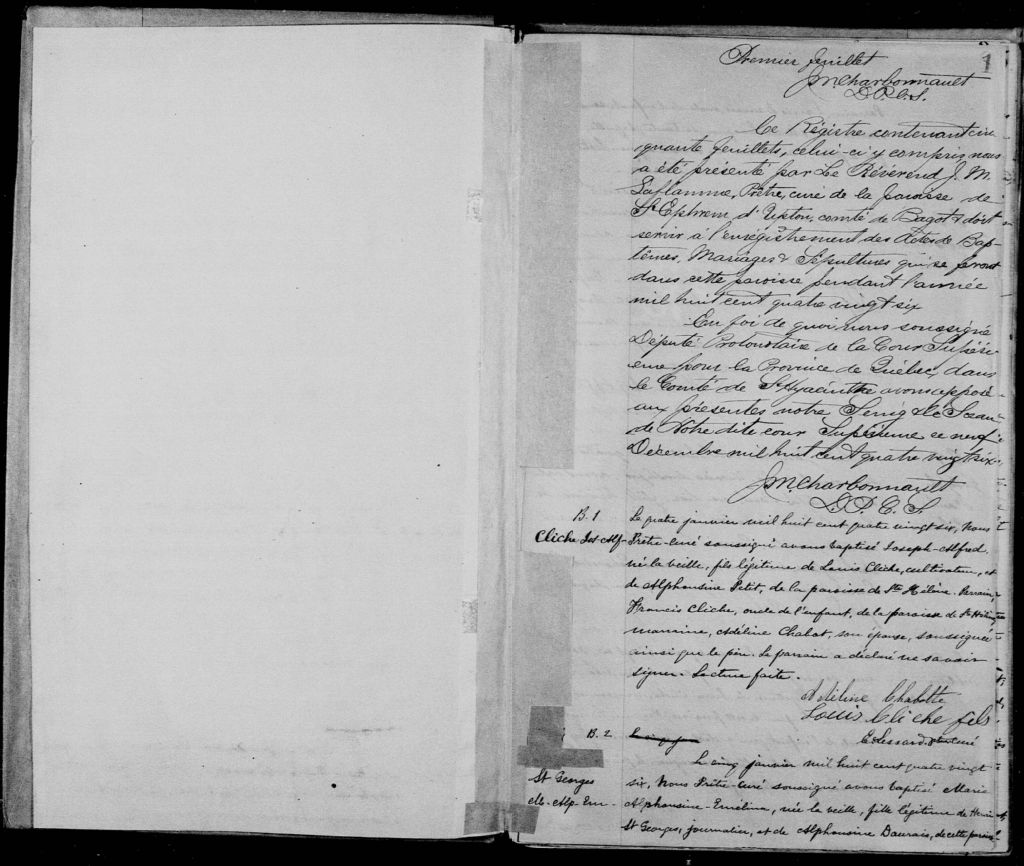 1
Premier feuillet
J. M. Charbonnault
D. P. C. S.
Ce Régistre contenant cin
quante feuillets, celui-ci y compris nous
a été présenté par Le Révérend J. M.
Laflamme, Prêtre, curé de la paroisse de
St Ephrem d'Upton, comté de Bagot & doit
servir à l'enrégistrement des Actes de Bap-
têmes, Mariages & Sépultures qui se feront
dans cette paroisse pendant l'année
mil huit cent quatre vingt six
En foi de quoi nous soussigné
Député Protonotaire de la Cour Supéri
eure pour la Province de Québec, dans
le Comté de St Hyacinthe avons apposé
aux présentes notre Seing & le Sceau
de Notre dite cour Supérieure ce neuf
Décembre mil huit cent quatre vingt six
J. M. Charbonnault
D. P. C. S.
B. 1
Cliche Jos Alf-
Le quatre janvier mil huit cent quatre vingt six, Nous
Prêtre-curé soussigné avons baptisé Joseph-Alfred
né la veille, fils légitime de Louis Cliche, cultivateur, et
de Alphonsine Petit, de la paroisse de Ste Hélène. Parrain,
Francis Cliche, oncle de l'enfant, de la paroisse de Ste Hélène,
marraine, Adéline Chabot, son épouse, soussignée
ainsi que le père. Le parrain a déclaré ne savoir
signer. Lecture faite.
Adéline Chabotte
Louis Cliche fils
C. Lessard, ptre curé
B. 2
Le cinq jan
St Georges
M- Alp- Em-
Le cinq janvier mil huit cent quatre vingt
six, Nous Prêtre-curé soussigné avons baptisé Marie
Alphonsine-Emélina, née la veille, fille légitime de Henri
St Georges, journalier, et de Alphonsine Dauvais, de cette parois-